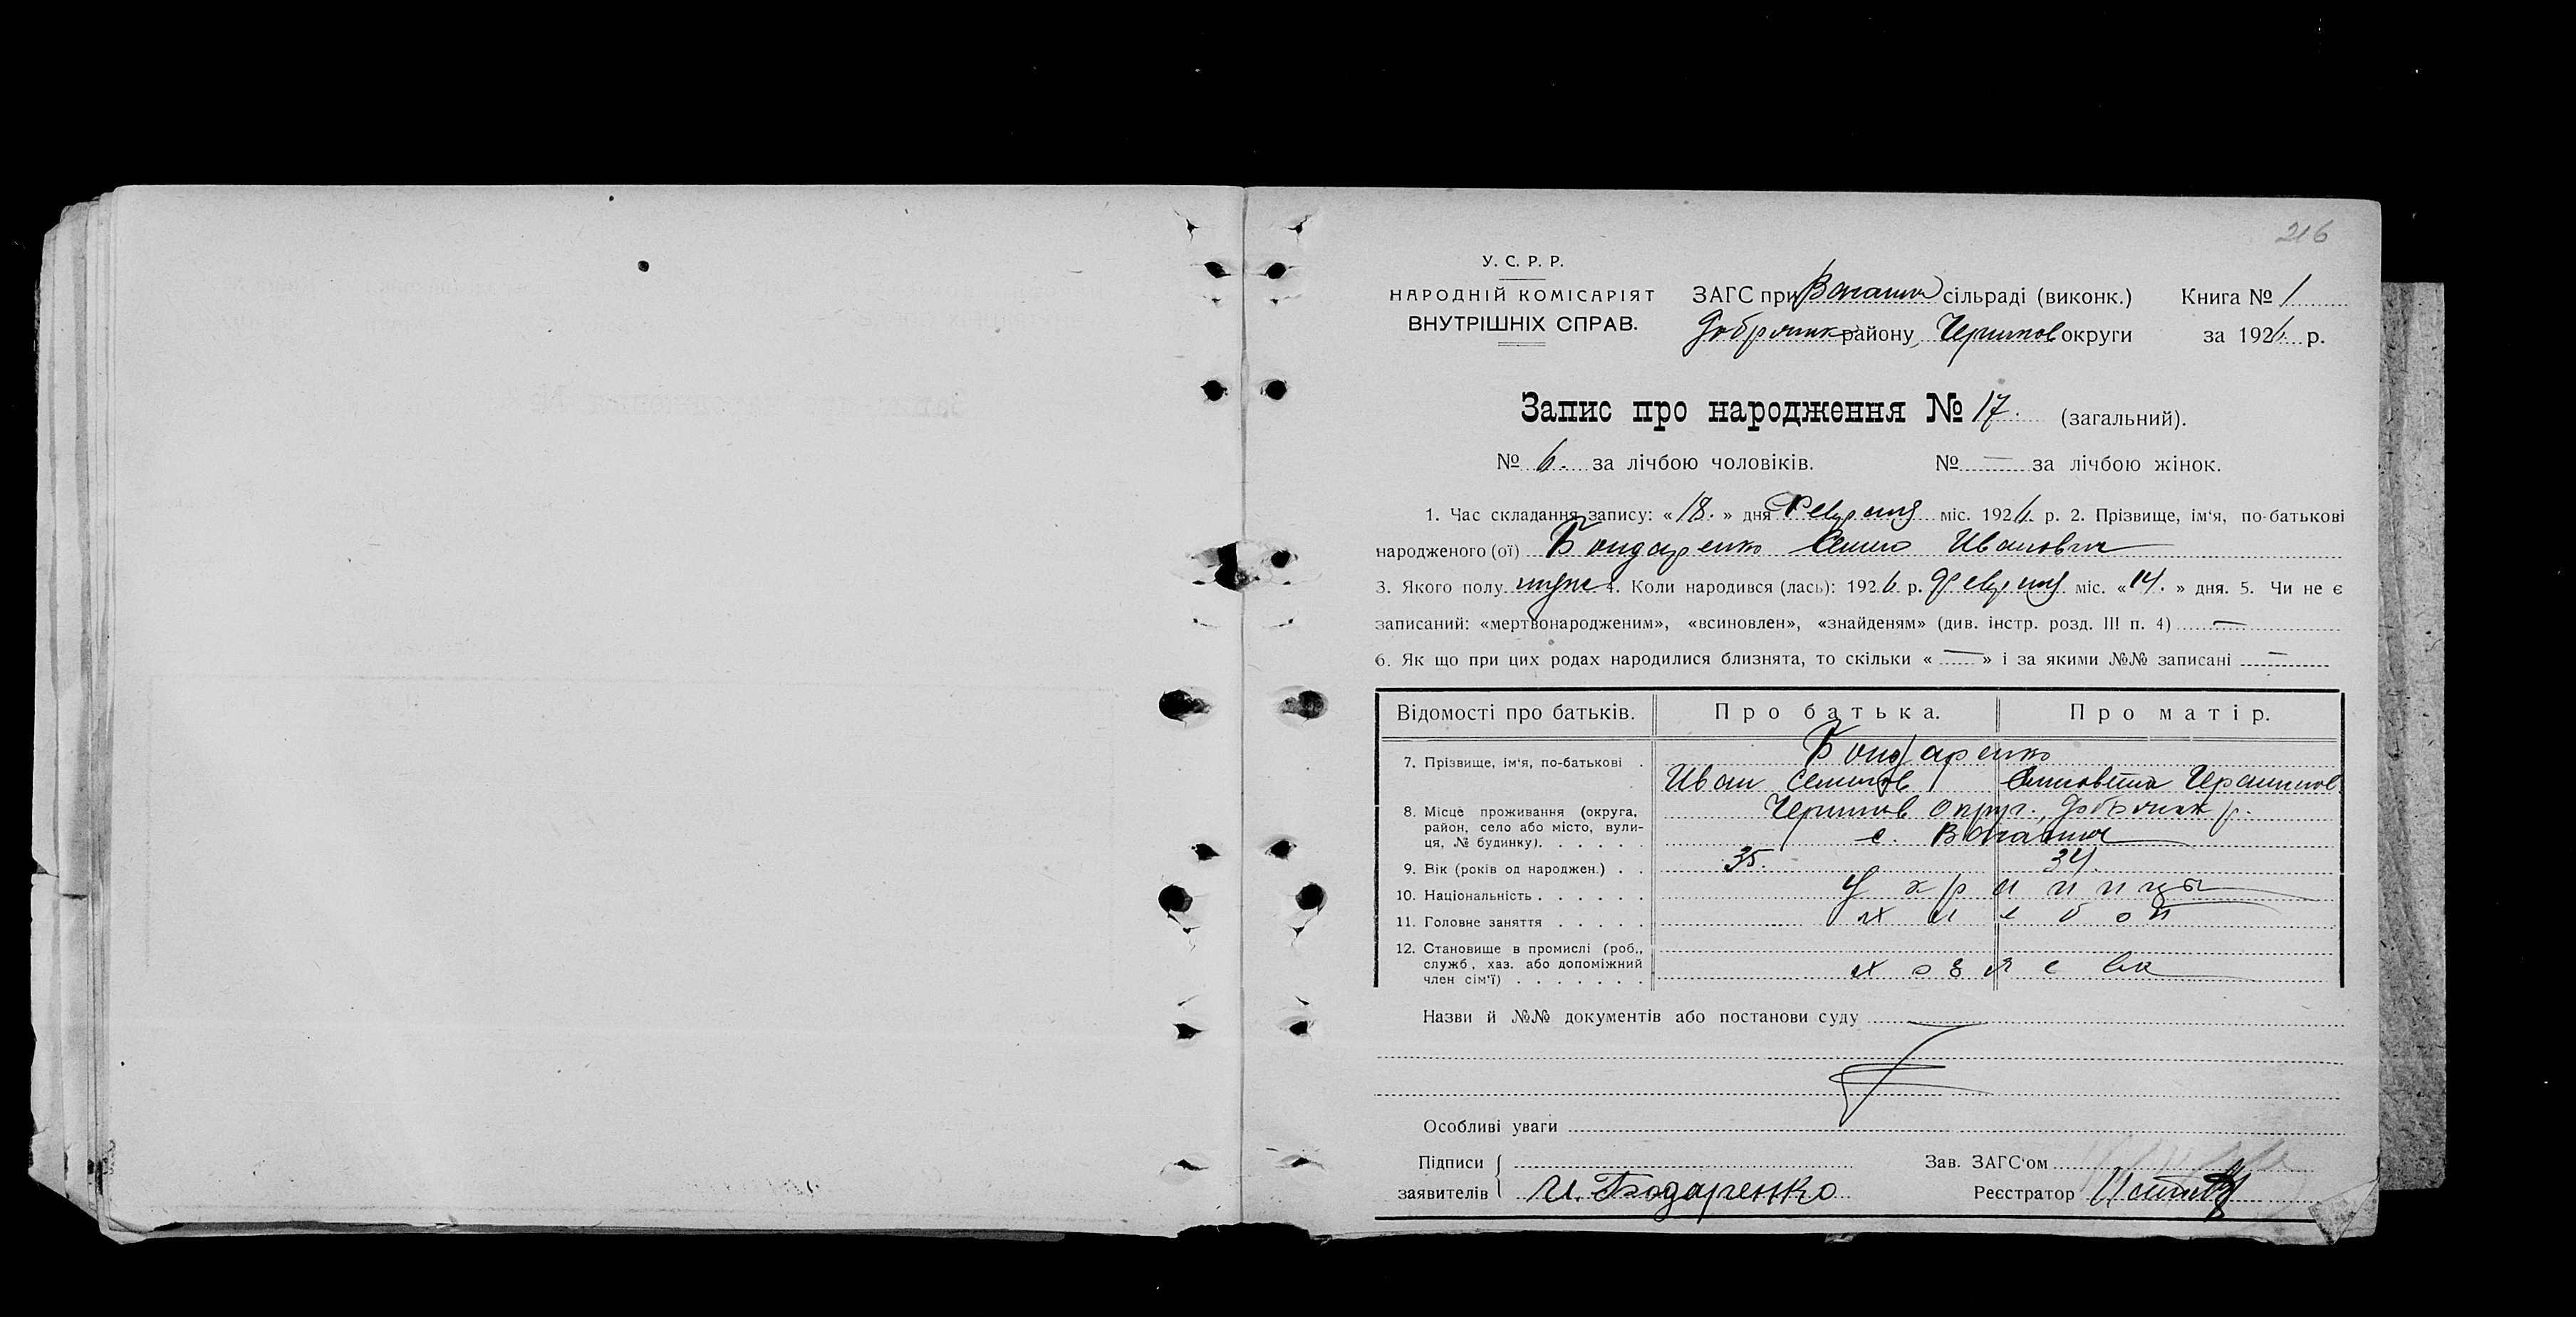 216
У. С. Р. Р.
НАРОДНІЙ КОМІСАРІЯТ
ВНУТРІШНІХ СПРАВ.
ЗАГС при сільраді (виконк.) Книга № 1
району, Чернигов округи за 1926 р.
Запис про народження № 17. (загальний).
№ 6. за лічбою чоловіків. № — за лічбою жінок.
1. Час складання запису: «18.» дня Февраля міс. 1926 р. 2. Прізвище, ім'я, по-батькові
народженого (ої) Бондаренко Иванович
3. Якого полу муж 4. Коли народився (лась): 1926 р. Февраля міс. «14.» дня. 5. Чи не є
записаний: «мертвонародженим», «всиновлен», «знайденям» (див. інстр. розд. III п. 4) —
6. Як що при цих родах народилися близнята, то скільки «—» і за якими №№ записані —
Відомості про батьків. Про батька. Про матір.
7. Прізвище, ім'я, по-батькові . Бондаренко
Иван Семенов
8. Місце проживання (округа, Чернигов округ.,
район, село або місто, вули-
ця, № будинку). . . . . . с.
9. Вік (років од народжен.) . . 35. 34.
10. Національність . . . . . . Украинцы
11. Головне заняття . . . . . хлебоп
12. Становище в промислі (роб.,
служб, хаз. або допоміжний хозяева
член сім'ї) . . . . . . .
Назви й №№ документів або постанови суду
Особливі уваги
Підписи Зав. ЗАГС'ом
заявителів И. Бодаренко Реєстратор